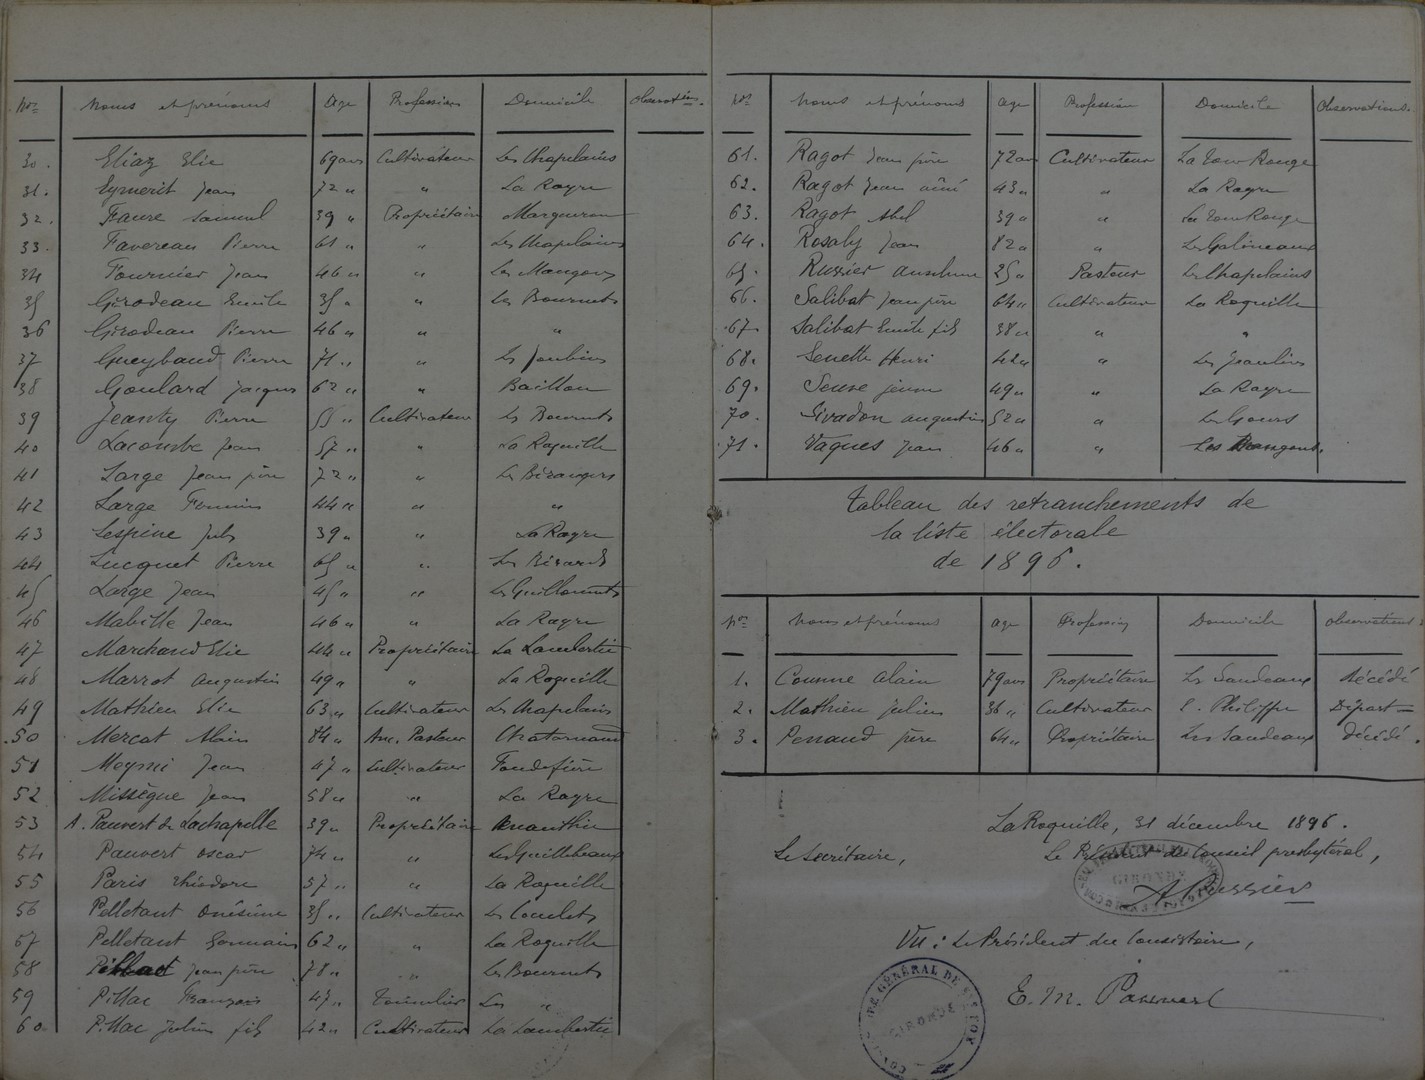 Nos Noms et prénoms Age Profession Domicile Observations.
30. Eliaz Elie 69 ans Cultivateur Les Chapelains
31. Eymerit Jean 72 " " La Rayre
32. Faure Samuel 39 " Propriétaire
33. Favereau Pierre 61 " " Les Chapelains
34 Fournier Jean 46 " " Les Mangons
35 Girodeau Emile 35 " " Les Bournets
36 Girodeau Pierre 46 " " "
37 Gueybaud Pierre 71 " " Les
38 Goulard Jacques 62 " "
39 Jeanty Pierre 55 " Cultivateur Les Bournets
40 Lacombe Jean 57 " " La Roquille
41 Large Jean père 72 " " Les Bérangers
42 Large Firmin 44 " " "
43 Lespine 39 " La Rayre
44 Lucquet Pierre 65 " " Les Bérards
45 Large Jean 45 " " Les Guillonnets
46 Mabille Jean 46 " " La Rayre
47 Marchand Elie 44 " Propriétaire La Lambertie
48 Marrot Augustin 49 " " La Roquille
49 Mathieu Elie 63 " Cultivateur Les Chapelains
50 Mercat Alain 84 " Anc. Pasteur
51 Meymi Jean 47 " Cultivateur
52 Missègue Jean 58 " " La Rayre
53 A. Pauvert de Lachapelle 39 " Propriétaire
54 Pauvert Oscar 74 " " Les Guillebeaux
55 Paris Théodore 37 " " La Roquille
56 Pelletant Onésime 35 " Cultivateur Les
57 Pelletant Germain 62 " " La Roquille
58 Jean père 78 " " Les Bournets
59 Pillac François 47 " Tonnelier Les "
60 Pillac Julien fils 42 " Cultivateur La Lambertie
Nos Noms et prénoms Age Profession Domicile Observations.
61. Ragot Jean père 72 ans Cultivateur La Tour Rouge
62. Ragot Jean aîné 43 " " La Rayre
63. Ragot Abel 39 " " La Tour Rouge
64. Rosaly Jean 82 " " Les Galineaux
65. Russier Anselme 25 " Pasteur Les Chapelains
66. Salibat Jean père 64 " Cultivateur La Roquille
67 Salibat Emile fils 38 " " "
68. Senette Henri 42 " " Les Jeaulins
69. Seuve jeune 49 " " La Rayre
70. Sivadon Augustin 52 " " Les Gours
71. Vaques Jean 46 " " Les Mangons.
Tableau des retranchements de
la liste électorale
de 1896.
Nos Noms et prénoms age Profession Domicile Observations.
1. Alain 79 ans Propriétaire Les Sandeaux Décédé
2. Mathieu Julien 36 " Cultivateur P. Philippe Départ
3. Penaud père 64 " Propriétaire Les Sandeaux Décédé.
La Roquille, 31 décembre 1896.
Le secrétaire, Le Président du Conseil presbytéral,
GIRONDE
A Russier
Vu : Le Président du Consistoire,
GÉNÉRAL DE STE FOY
GIRONDE
E. M. Pauvert